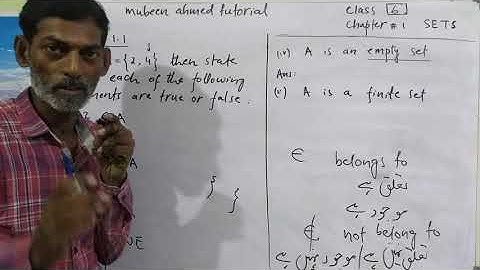 mubeen ahmed tutorial
Class 6
Chapter # 1 SETS
1.1
= {2, 4} then state
each of the following
ments are true or false.
A
A
(iv) A is an empty set
Ans:
(v) A is a finite set
∈ belongs to
تعلق ہے
موجود ہے
∉ not belong to
تعلق نہیں ہے / موجود نہیں ہے